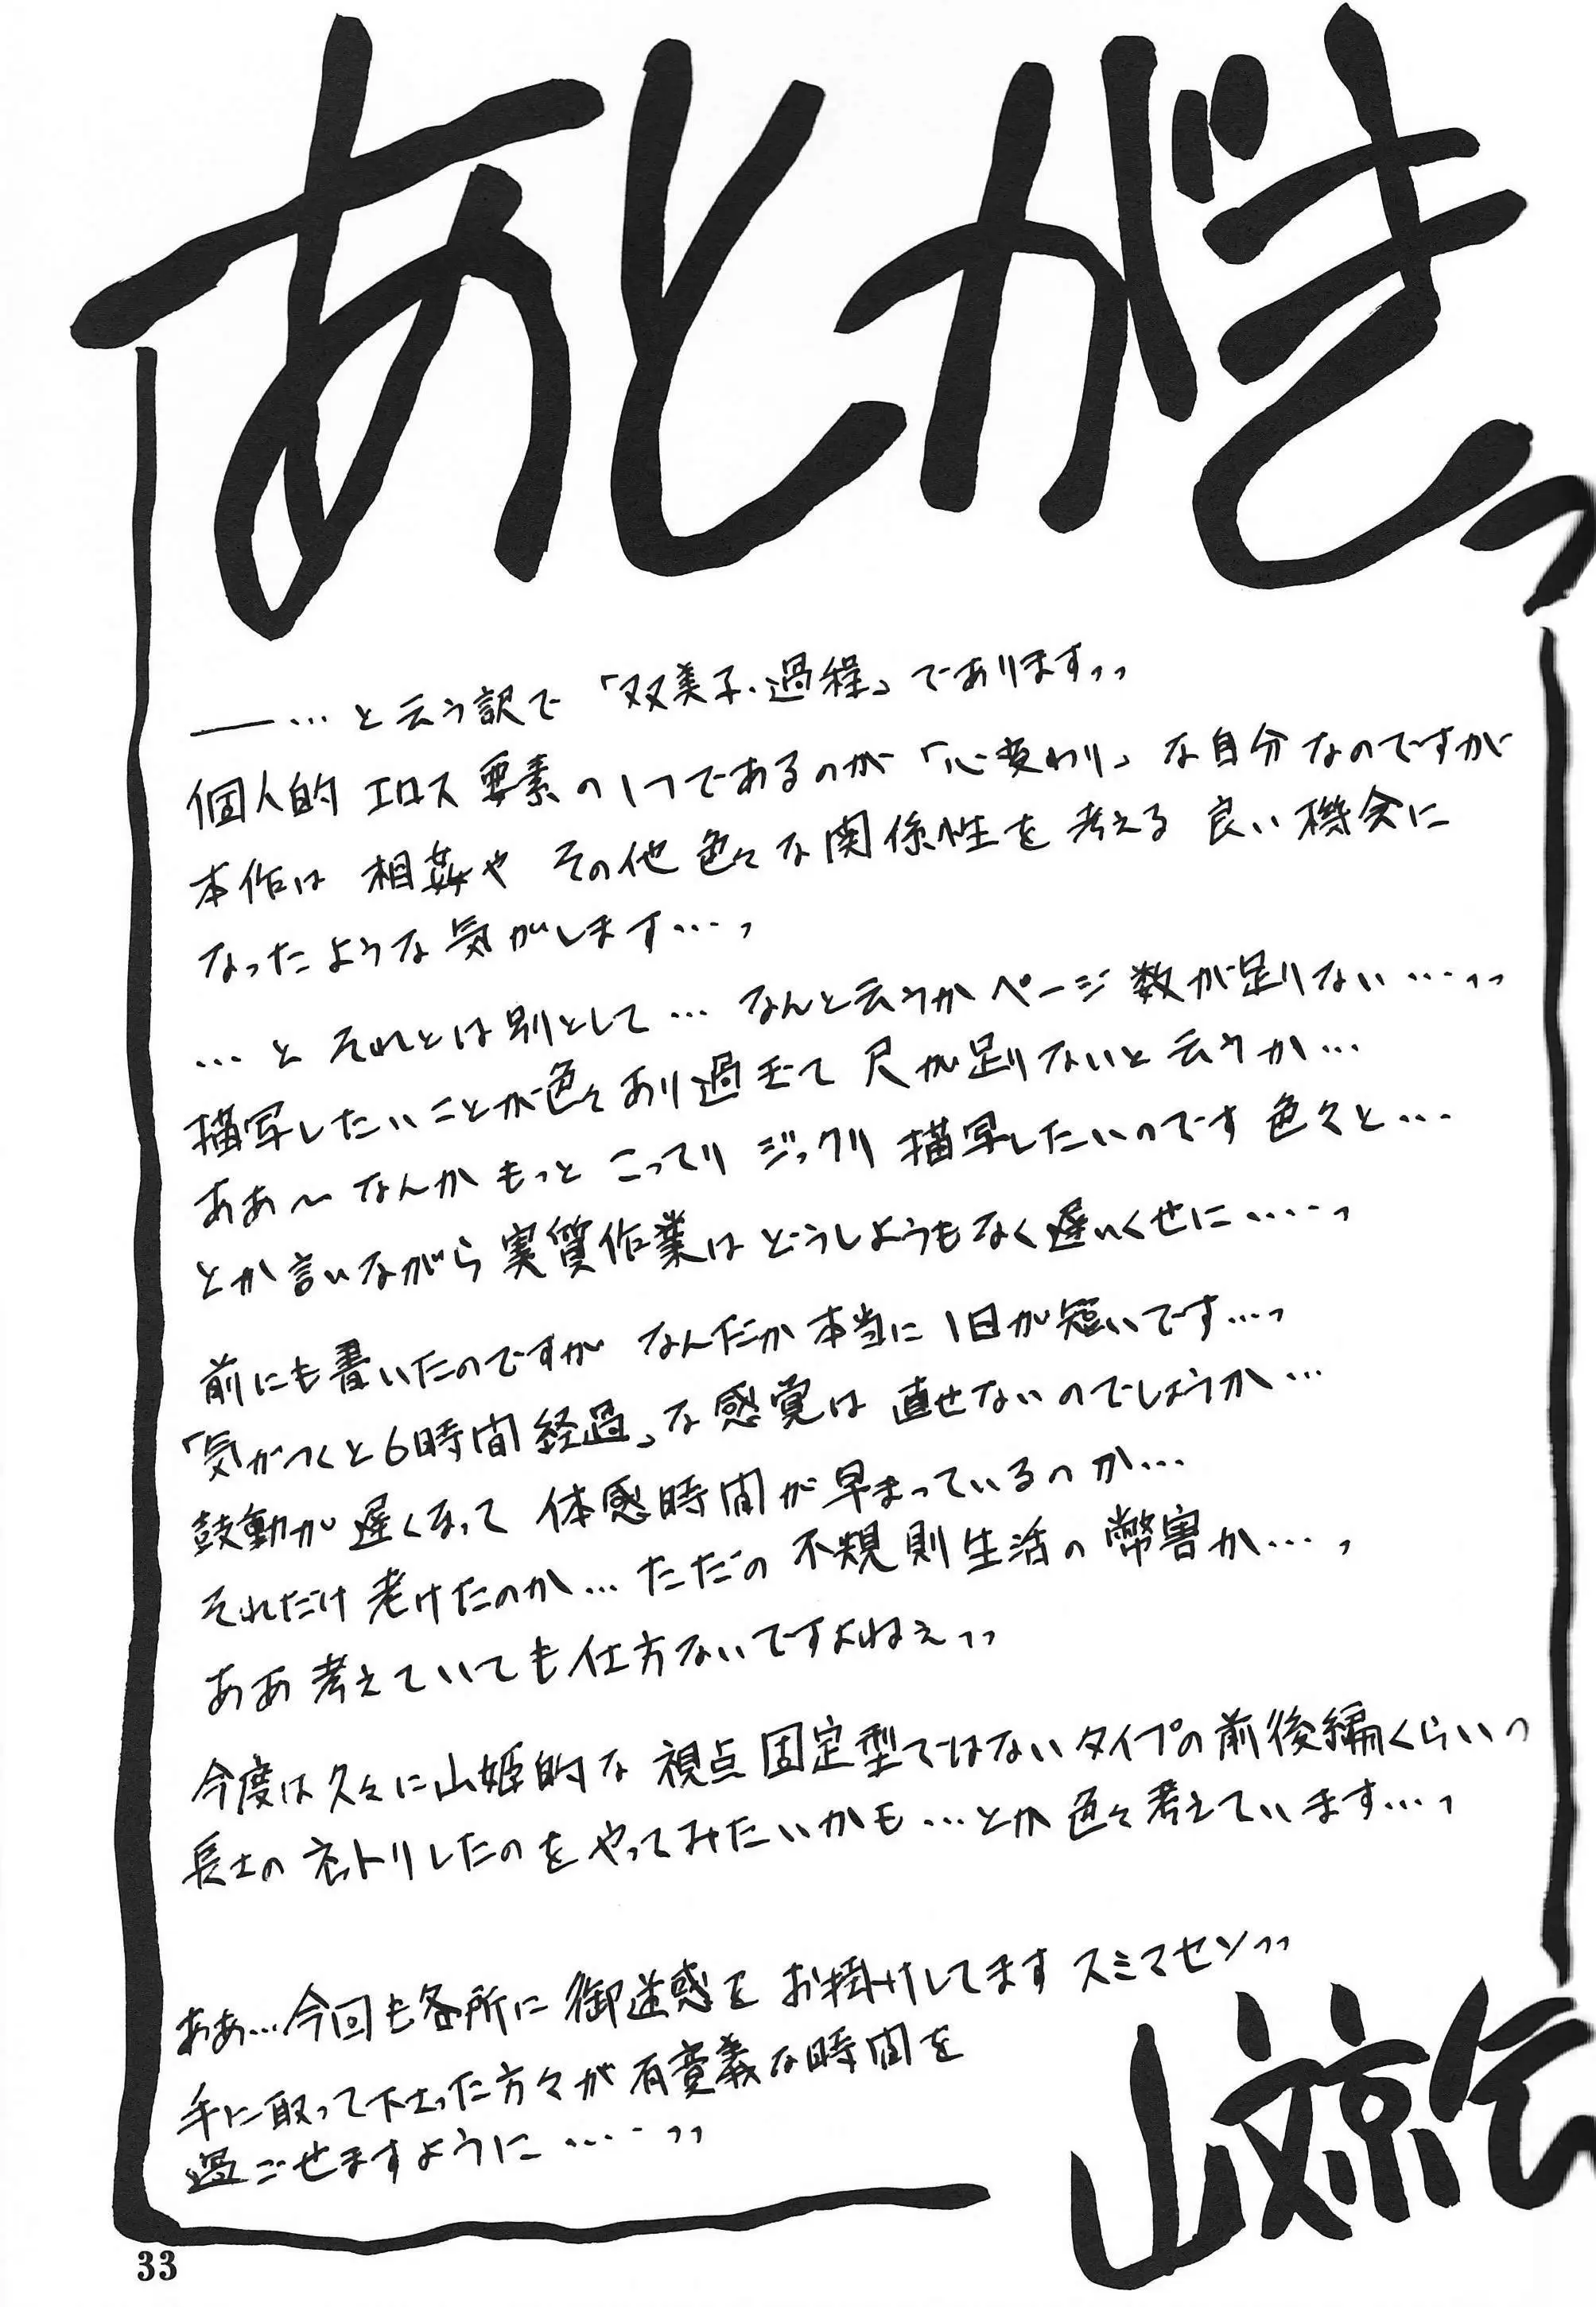 あとがきっ
――…と云う訳で「双美子・過程」でありますっっ
個人的エロス要素の1つであるのが「心変わり」な自分なのですが
本作は 相姦や その他色々な関係性を 考える 良い機会に
なったような気がします…っ
…と それとは別として… なんと云うかページ数が足りない…っっ
描写したいことが色々あり過ぎて 尺が足りないと云うか…
ああ～なんか もっと こってり ジックリ 描写したいのです 色々と…
とか言いながら実質作業は どうしようもなく遅いくせに……っ
前にも書いたのですが なんだか本当に 1日が短いです…っ
「気がつくと6時間経過」な感覚は 直せないのでしょうか…
鼓動が遅くなって 体感時間が早まっているのか…
それだけ 老けたのか…ただの 不規則生活の弊害か…っ
ああ考えていても仕方ないですよねぇっっ
今度は久々に山姫的な 視点固定型ではないタイプの前後編くらいっ
長上の ネトリしたのを やってみたいかも…とか 色々考えています…っ
ああ…今回も各所に 御迷惑を お掛けしてます スミマセンっっ
手に取って下さった方々が 有意義な時間を
過ごせますように……っっ
山文京伝
33